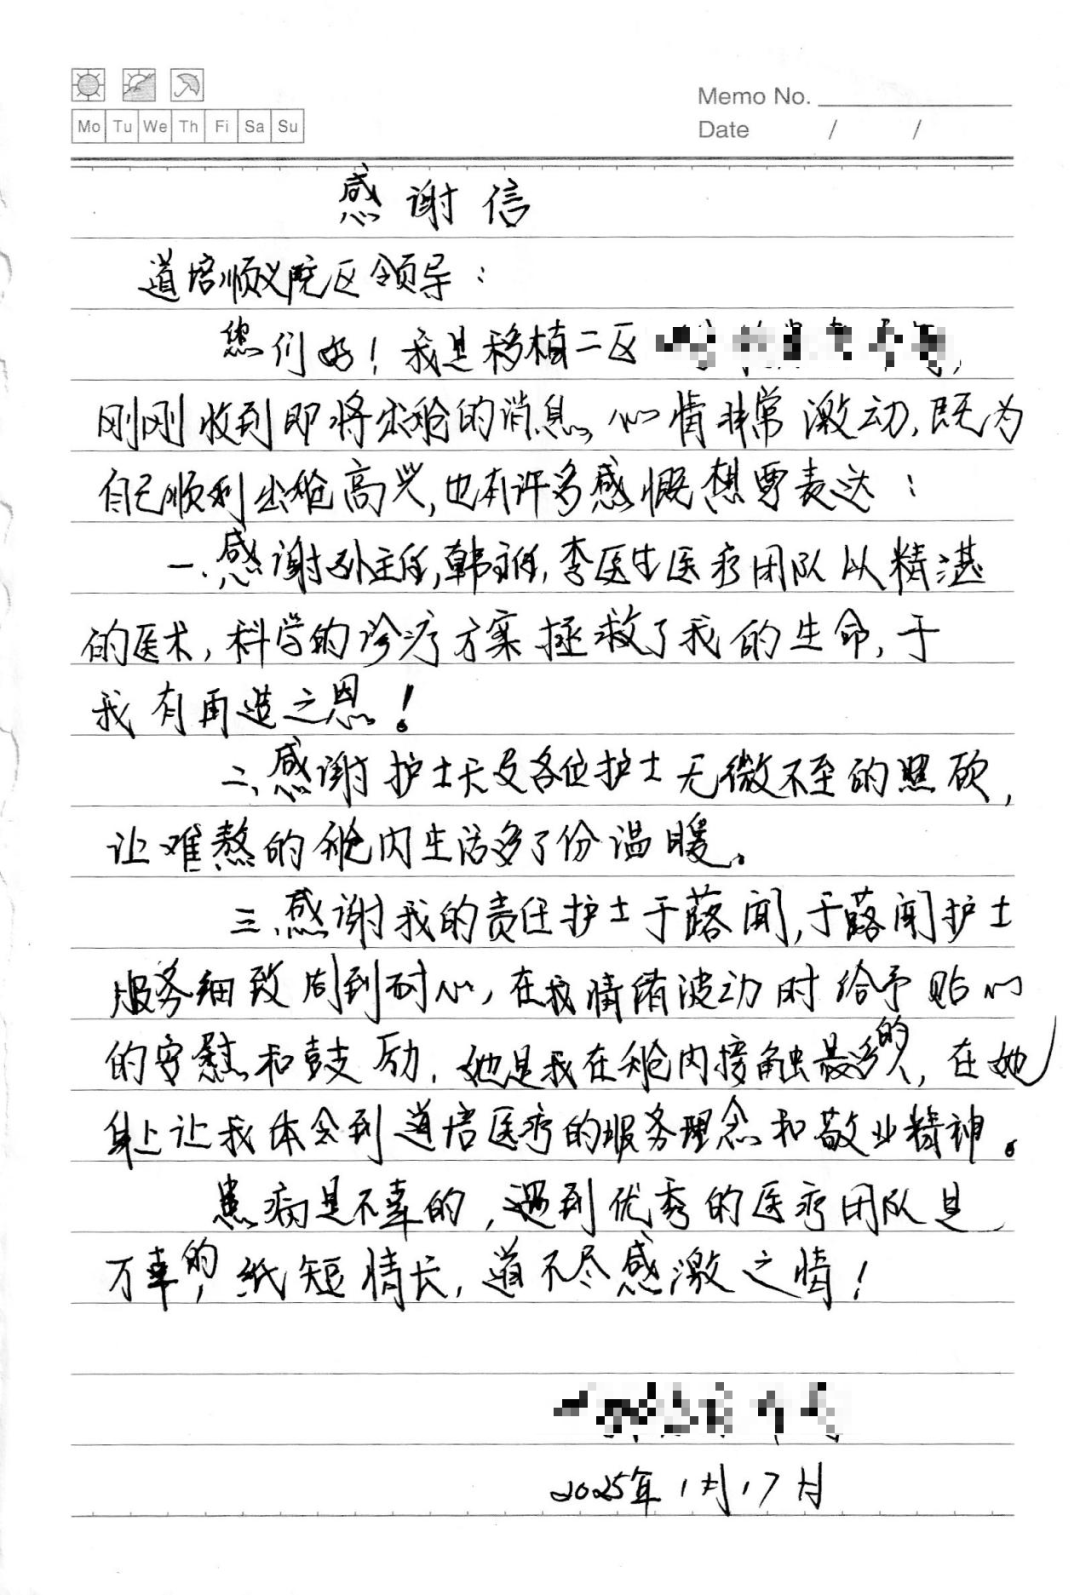 Mo Tu We Th Fi Sa Su
Memo No.
Date / /
感谢信
道培顺义院区领导：
您们好！我是移植二区
刚刚收到即将出舱的消息，心情非常激动，既为
自己顺利出舱高兴，也有许多感慨想要表达：
一、感谢孙主任，韩主任，李医生医疗团队以精湛
的医术，科学的诊疗方案拯救了我的生命，于
我有再造之恩！
二、感谢护士长及各位护士无微不至的照顾，
让难熬的舱内生活多了份温暖。
三、感谢我的责任护士于潞闻，于潞闻护士
服务细致周到耐心，在我情绪波动时给予贴心
的安慰和鼓励，她是我在舱内接触最多的人，在她
身上让我体会到道培医疗的服务理念和敬业精神。
患病是不幸的，遇到优秀的医疗团队是
万幸的，纸短情长，道不尽感激之情！
2025年1月17日